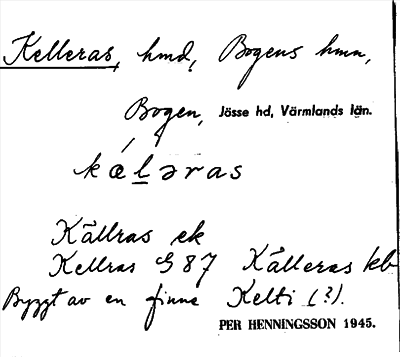 Kelleras, hmd, Bogens hmn,
Bogen, Jösse hd, Värmlands län.
kæ̀ĺ̠əras
Källras ek
Kellras G 87 Källeras kb
Byggt av en finne Kelti (?).
PER HENNINGSSON 1945.